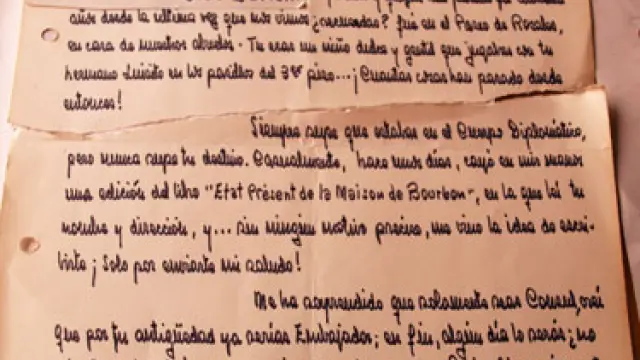 años desde la última vez que nos vimos ¿recuerdas? fué en el Paseo de Rosales,
en casa de nuestros abuelos.- Tu eras un niño dulce y gentil que jugabas con tu
hermano Luisito en los pasillos del 3er piso...¡Cuantas cosas han pasado desde
entonces!
Siempre supe que estabas en el Cuerpo Diplomático,
pero nunca supe tu destino. Casualmente, hace unos días, cayó en mis manos
una edición del libro "Etat Présent de la Maison de Bourbon", en la que leí tu
nombre y dirección, y... sin ningún motivo preciso, me vino la idea de escri-
birte ¡Solo por enviarte mi saludo!
Me ha sorprendido que solamente seas Consul, creí
que por tu antigüedad ya serías Embajador; en fin, algún día lo serás; no